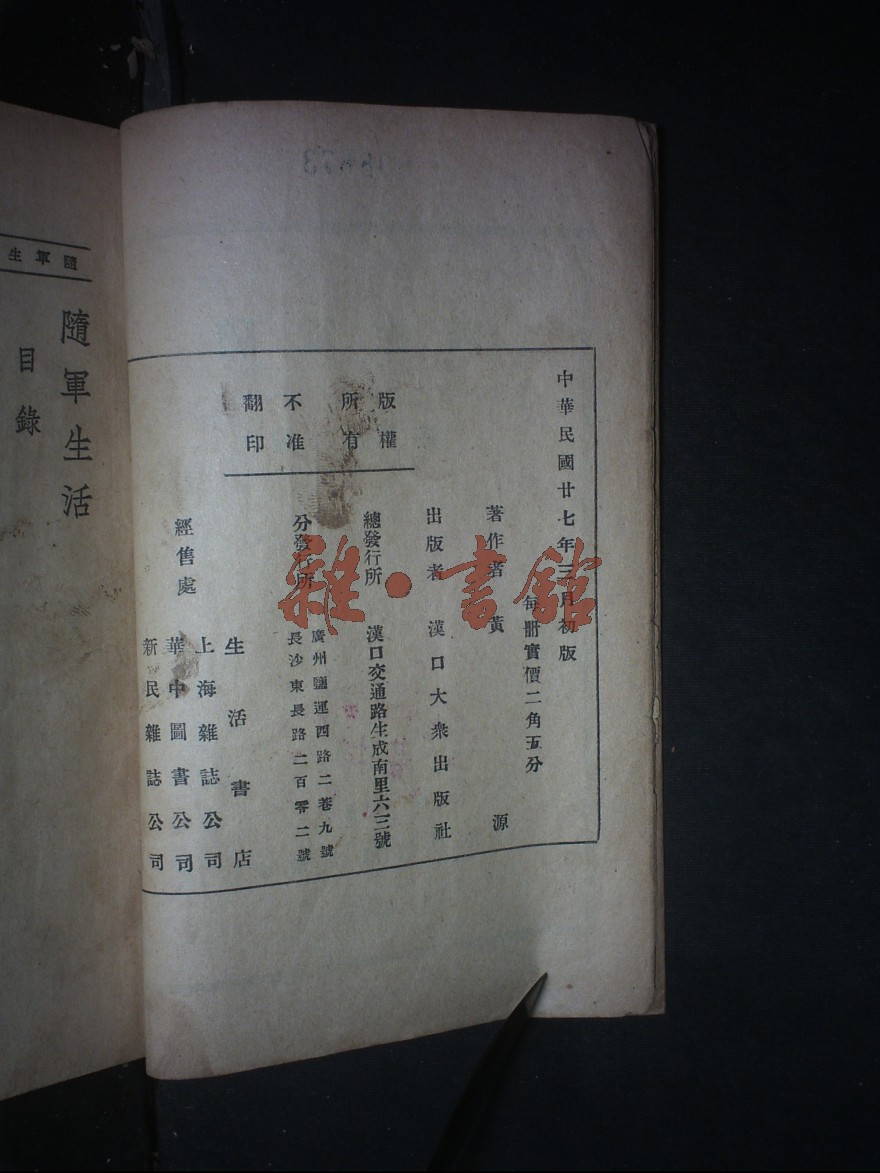 中華民國廿七年三月初版
每冊實價二角五分
著作者 黃源
出版者 漢口大衆出版社
版權
所有
不准
翻印
總發行所 漢口交通路生成南里六三號
分發行所
廣州鹽運西路二巷九號
長沙東長路二百零二號
經售處
生活書店
上海雜誌公司
華中圖書公司
新民雜誌公司
隨軍生
隨軍生活
目錄
雜·書館